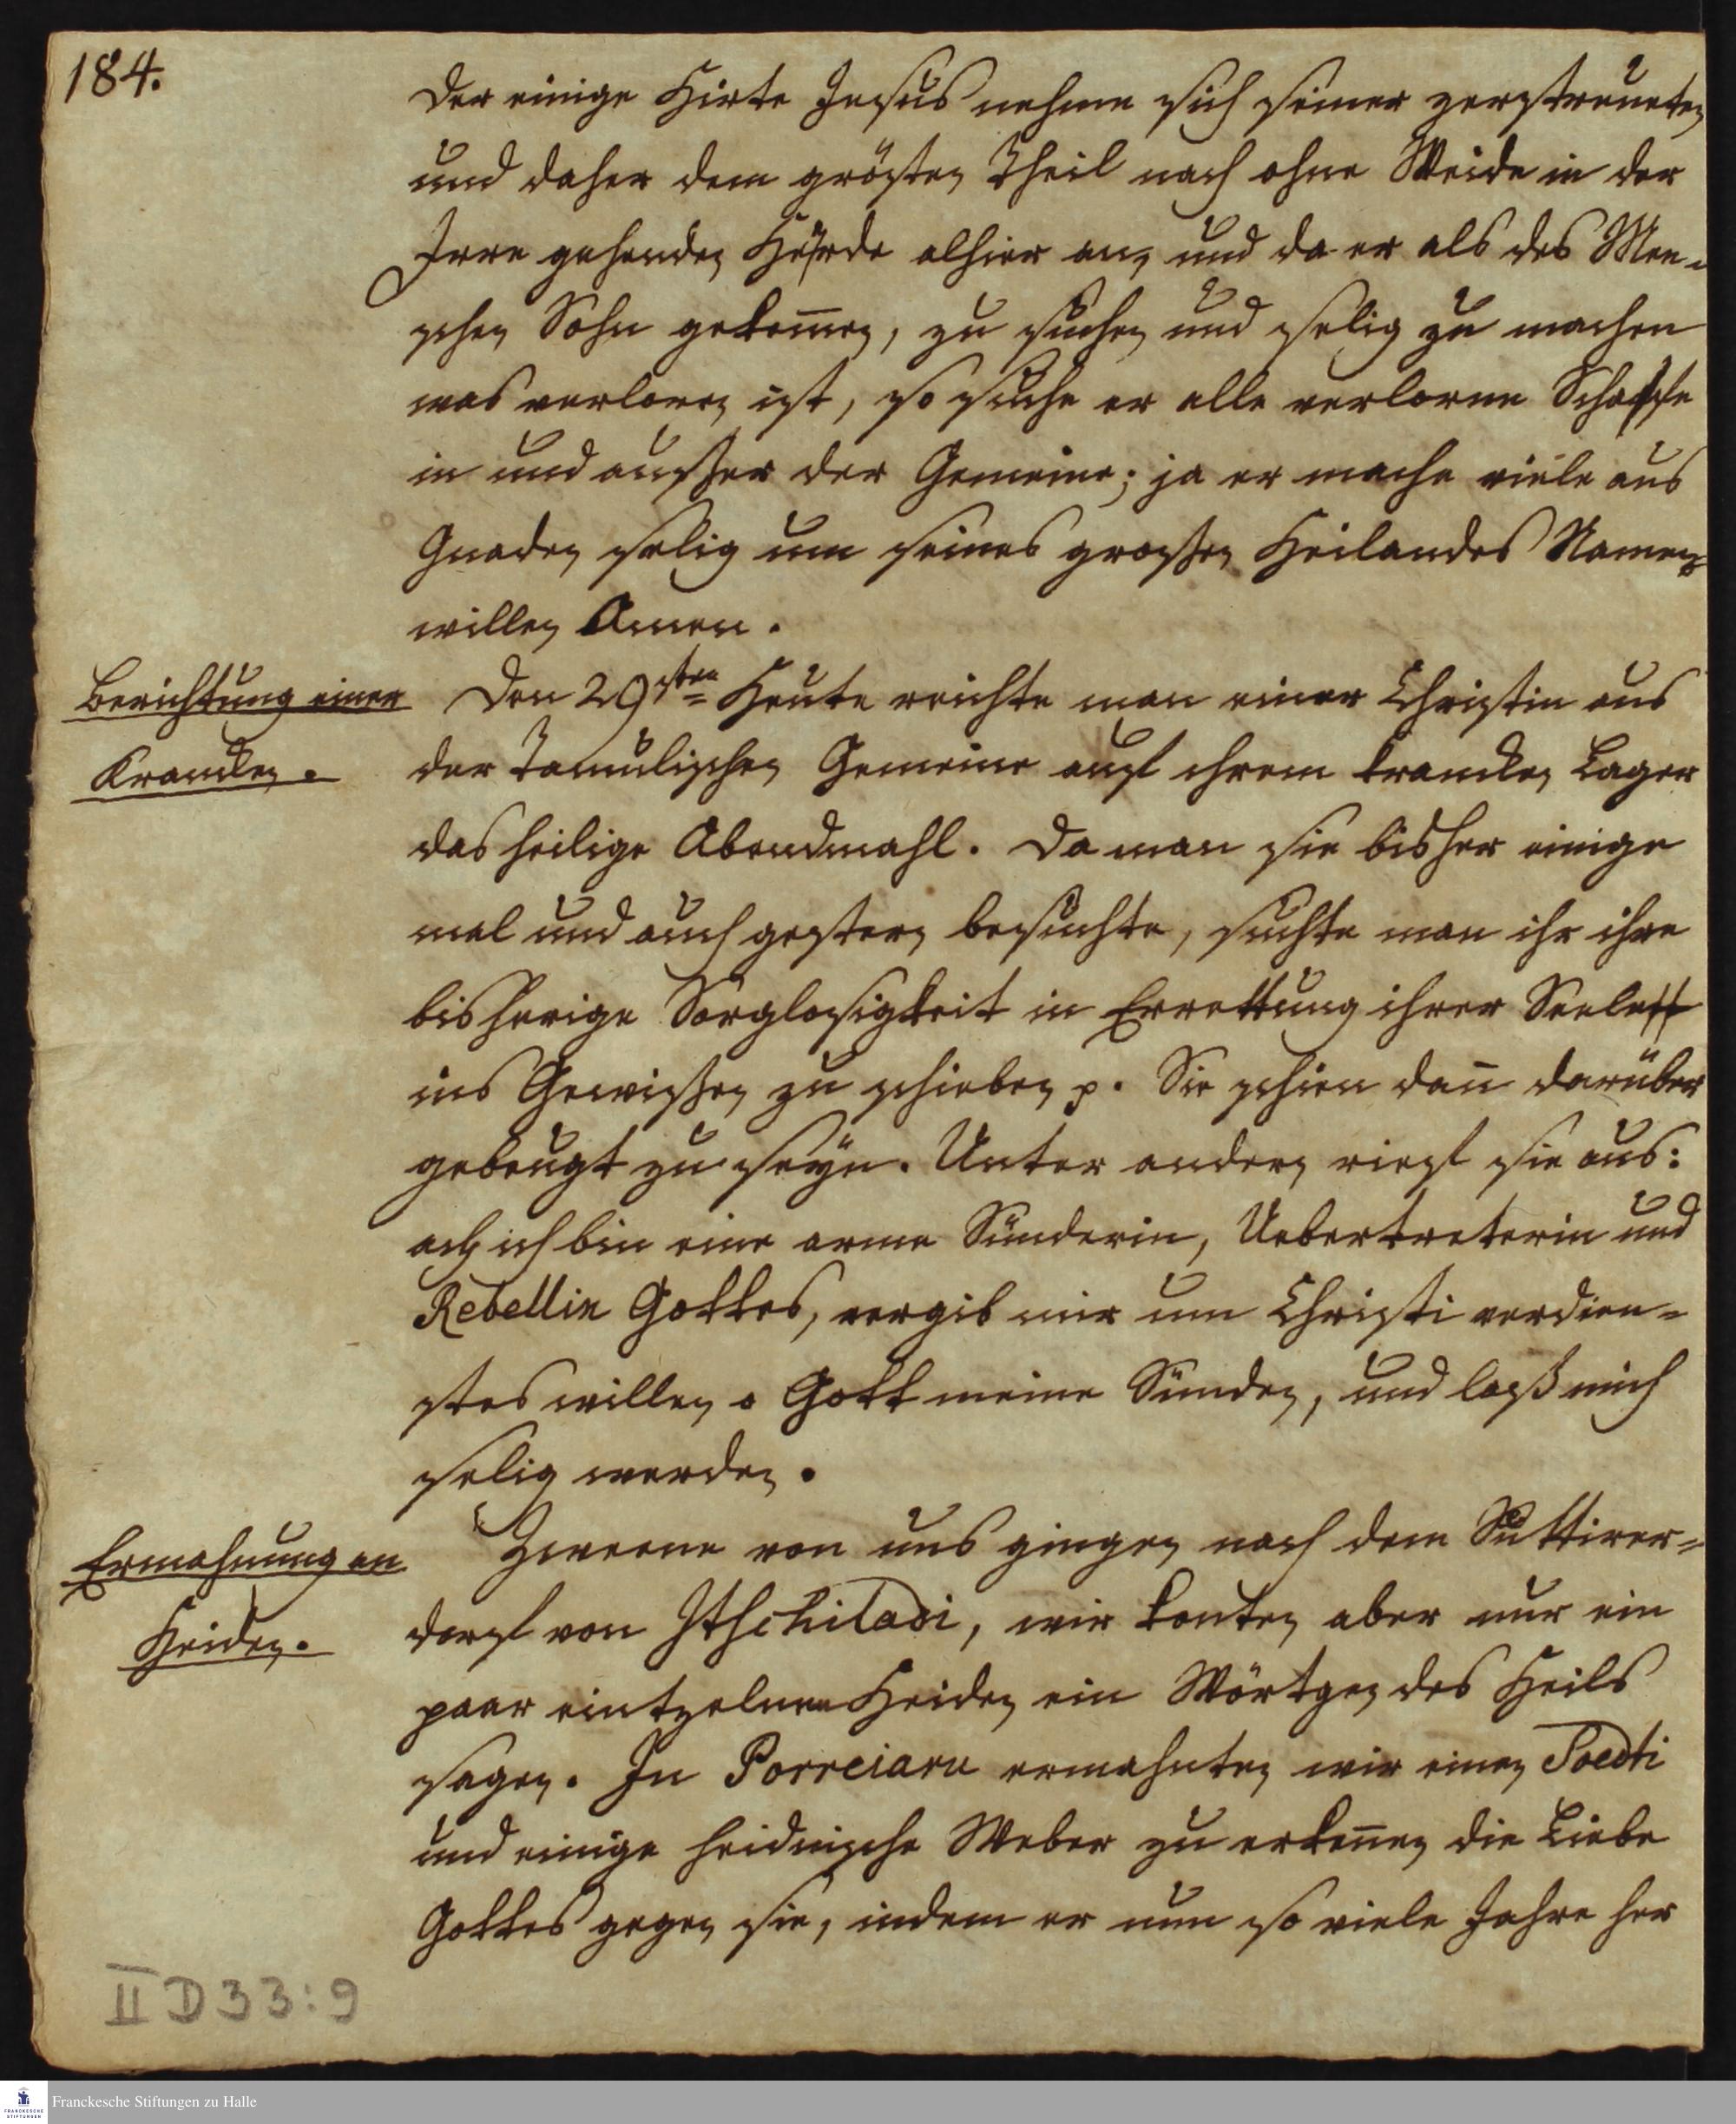 184.
der einige Hirte Jesus nehme sich seiner zerstreueten
und daher dem grösten Theil nach ohne Weide in der
Irre gehenden Heerde alhier an, und da er als des Men-
schen Sohn gekom̄en, zu suchen und selig zu machen
was verloren ist, so suche er alle verlorne Schafe
in und ausser der Gemeine; ja er mache viele aus
Gnaden selig um seines grossen Heilandes Namens
willen Amen.
Berichtung einer
Krancken.
Den 29sten Heute reichte man einer Christin aus
der Tamulischen Gemeine auf ihrem krancken Lager
das heilige Abendmahl. Da man sie bisher einige
mal und auch gestern besuchte, suchte man ihr ihre
bisherige Sorglosigkeit in Errettung ihrer Seele
ins Gewissen zu schieben p. Sie schien dan̄ darüber
gebeugt zu seÿn. Unter andern rief sie aus:
ach ich bin eine arme Sünderin, Uebertreterin und
Rebellin Gottes, vergib mir um Christi verdien-
stes willen o Gott meine Sünden, und laß mich
selig werden.
Ermahnung an
Heiden.
Zweene von uns gingen nach dem Suttirer-
dorf von Itschiladi, wir konten aber nur ein
paar eintzelnen Heiden ein Wörtgen des Heils
sagen. In Porreiaru ermahnten wir einen Poedti
und einige heidnische Weber zu erken̄en die Liebe
Gottes gegen sie, indem er nun so viele Jahre her
II D 33:9
Franckesche Stiftungen zu Halle
FRANCKESCHE
STIFTUNGEN